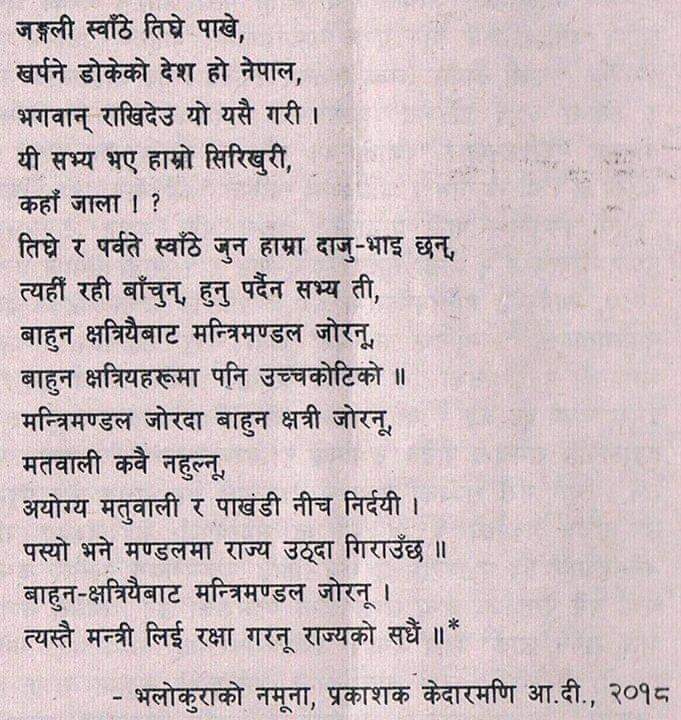 जङ्गली स्वाँठे तिघ्रे पाखे,
खर्पने डोकेको देश हो नेपाल,
भगवान् राखिदेउ यो यसै गरी ।
यी सभ्य भए हाम्रो सिरिखुरी,
कहाँ जाला । ?
तिघ्रे र पर्वते स्वाँठे जुन हाम्रा दाजु-भाइ छन्,
त्यहीं रही बाँचुन्, हुनु पर्दैन सभ्य ती,
बाहुन क्षत्रियैबाट मन्त्रिमण्डल जोरनू,
बाहुन क्षत्रियहरूमा पनि उच्चकोटिको ॥
मन्त्रिमण्डल जोरदा बाहुन क्षत्री जोरनू,
मतवाली कवै नहुल्नू,
अयोग्य मतुवाली र पाखंडी नीच निर्दयी ।
पस्यो भने मण्डलमा राज्य उठ्दा गिराउँछ ॥
बाहुन-क्षत्रियैबाट मन्त्रिमण्डल जोरनू ।
त्यस्तै मन्त्री लिई रक्षा गरनू राज्यको सधैं ॥*
- भलोकुराको नमूना, प्रकाशक केदारमणि आ.दी., २०१८